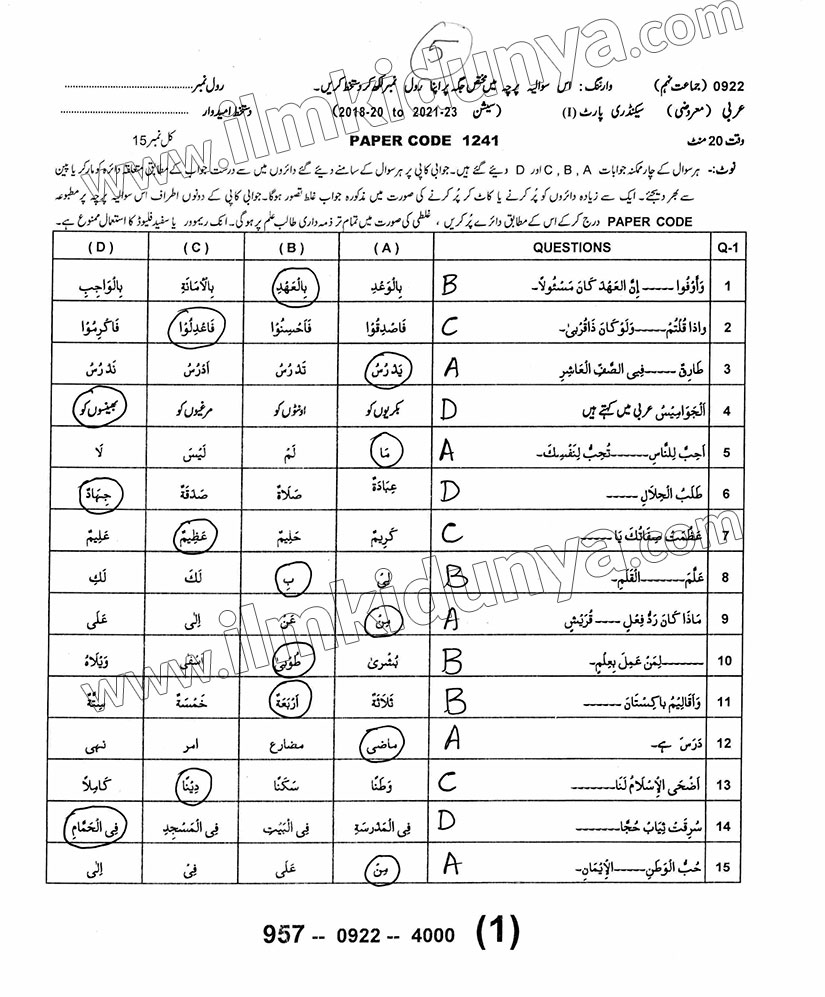 5
0922 (جماعت نہم) وارننگ: اس سوالیہ پرچہ میں مختص جگہ پر اپنا رول نمبر لکھ کر دستخط کریں۔ رول نمبر
عربی (معروضی) سیکنڈری پارٹ (I) (سیشن 2018-20 to 2021-23) دستخط امیدوار
وقت 20 منٹ PAPER CODE 1241 کل نمبر 15
نوٹ:- ہر سوال کے چار ممکنہ جوابات A , B , C اور D دیئے گئے ہیں۔ جوابی کاپی پر ہر سوال کے سامنے دیئے گئے دائروں میں سے درست جواب کے مطابق متعلقہ دائرہ کو مارکر یا پین
سے بھر دیجئے۔ ایک سے زیادہ دائروں کو پُر کرنے یا کاٹ کر پُر کرنے کی صورت میں مذکورہ جواب غلط تصور ہوگا۔ جوابی کاپی کے دونوں اطراف اس سوالیہ پرچہ پر مطبوعہ
PAPER CODE درج کر کے اس کے مطابق دائرے پُر کریں ، غلطی کی صورت میں تمام تر ذمہ داری طالب علم پر ہوگی۔ انک ریموور یا سفید فلیوڈ کا استعمال ممنوع ہے۔
Q-1 QUESTIONS (A) (B) (C) (D)
1 وَاَوْفُوا ----- اِنَّ الْعَهْدَ كَانَ مَسْئُولًا۔ B بِالْوَعْدِ بِالْعَهْدِ بِالْاَمَانَةِ بِالْوَاجِبِ
2 واذا قُلْتُمْ-----وَلَوْ كَانَ ذَاقُرْبىٰ۔ C فَاصْدِقُوْا فَاَحْسِنُوْا فَاعْدِلُوْا فَاكْرِمُوْا
3 طَارِق -----فِيى الصَّفِّ الْعَاشِرِ A يَدْرُسُ تَدْرُسُ اَدْرُسُ نَدْرُسُ
4 اَلْجَوَامِيْسُ عربی میں کہتے ہیں D بکریوں کو اونٹوں کو مرغیوں کو بھینسوں کو
5 اَحِبَّ لِلنَّاسِ------تُحِبُّ لِنَفْسِكَ۔ A مَا لَمْ لَيْسَ لَا
6 طَلَبُ الْحَلَالِ ----- D عِبَادَةٌ صَلَاةٌ صَدَقَةٌ جِهَادٌ
7 عَظُمَتْ صِفَاتُكَ يَا ----- C كَرِيْمُ حَلِيْمُ عَظِيْمُ عَلِيْمُ
8 عَلَّمَ------ الْقَلَمِ۔ B لِىْ بِ لَكَ لَكِ
9 مَاذَا كَانَ رَدُّ فِعْلِ ---- قُرَيْشٍ A مِنْ عَنْ اِلٰى عَلٰى
10 ------لِمَنْ عَمِلَ بِعِلْمٍ۔ B بُشْرىٰ طُوْبىٰ اَسَفٰى وَيْلَاهُ
11 وَاَقَالِيْمُ بَاكِسْتَانَ ------ B ثَلَاثَةٌ اَرْبَعَةٌ خَمْسَةٌ سِتَّةٌ
12 دَرَسَ ہے۔ A ماضی مضارع امر نہی
13 اَضْحَى الْاِسْلَامُ لَنَا------ C وَطَنًا سَكَنًا دِيْنًا كَامِلاً
14 سُرِقَتْ ثِيَابُ حُجَّا------ D فِى الْمَدْرَسَةِ فِى الْبَيْتِ فِى الْمَسْجِدِ فِى الْحَمَّامِ
15 حُبُّ الْوَطَنِ-----الْاِيْمَانِ۔ A مِنْ عَلٰى فِىْ اِلٰى
957 -- 0922 -- 4000 (1)
www.ilmkidunya.com
www.ilmkidunya.com
www.ilmkidunya.com